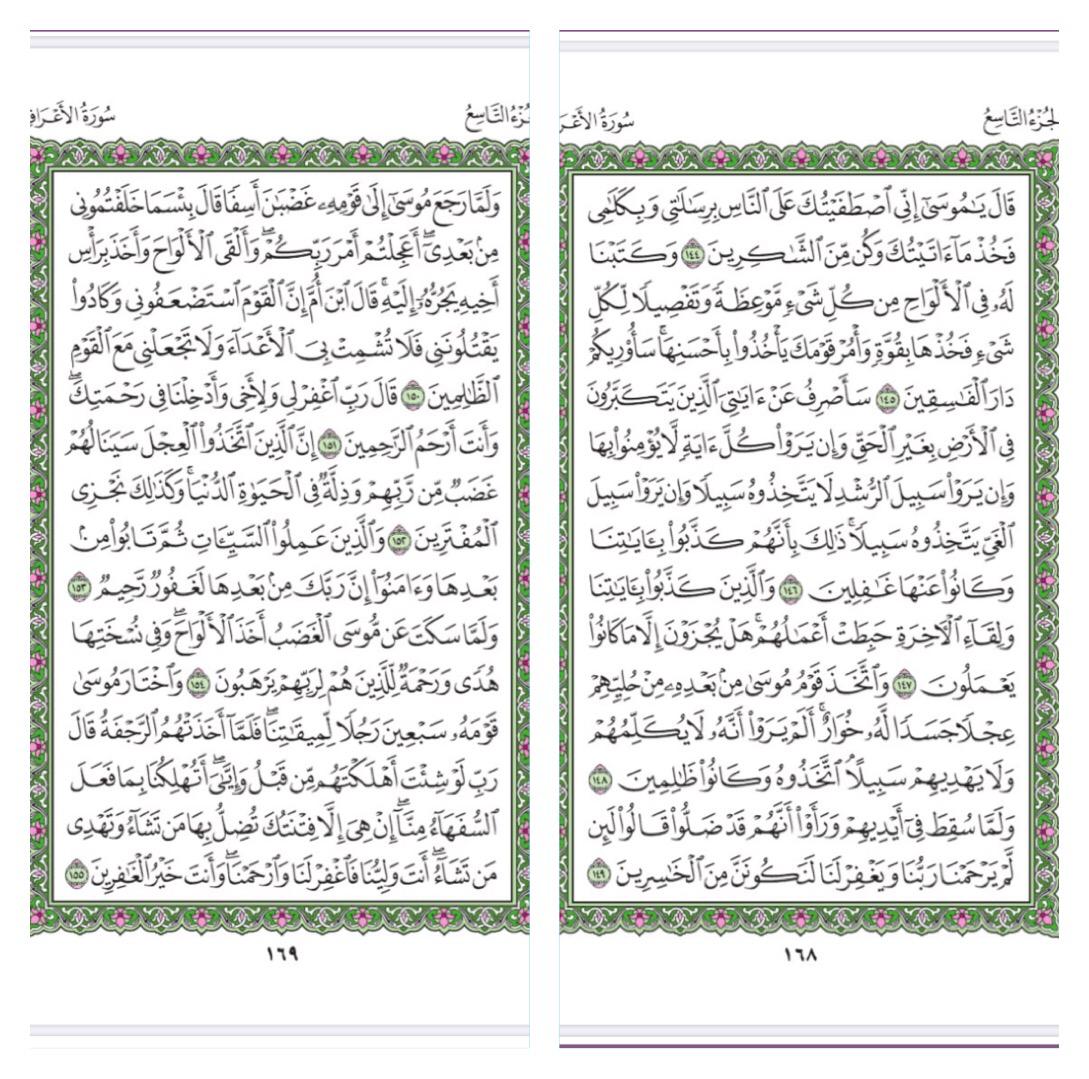 الجُزْءُ التَّاسِعُ
سُورَةُ الأَعْرَ
قَالَ يَـٰمُوسَىٰٓ إِنِّى ٱصْطَفَيْتُكَ عَلَى ٱلنَّاسِ بِرِسَـٰلَـٰتِى وَبِكَلَـٰمِى
فَخُذْ مَآ ءَاتَيْتُكَ وَكُن مِّنَ ٱلشَّـٰكِرِينَ ١٤٤ وَكَتَبْنَا
لَهُۥ فِى ٱلْأَلْوَاحِ مِن كُلِّ شَىْءٍ مَّوْعِظَةً وَتَفْصِيلًا لِّكُلِّ
شَىْءٍ فَخُذْهَا بِقُوَّةٍ وَأْمُرْ قَوْمَكَ يَأْخُذُوا۟ بِأَحْسَنِهَا ۚ سَأُو۟رِيكُمْ
دَارَ ٱلْفَـٰسِقِينَ ١٤٥ سَأَصْرِفُ عَنْ ءَايَـٰتِىَ ٱلَّذِينَ يَتَكَبَّرُونَ
فِى ٱلْأَرْضِ بِغَيْرِ ٱلْحَقِّ وَإِن يَرَوْا۟ كُلَّ ءَايَةٍ لَّا يُؤْمِنُوا۟ بِهَا
وَإِن يَرَوْا۟ سَبِيلَ ٱلرُّشْدِ لَا يَتَّخِذُوهُ سَبِيلًا وَإِن يَرَوْا۟ سَبِيلَ
ٱلْغَىِّ يَتَّخِذُوهُ سَبِيلًا ۚ ذَٰلِكَ بِأَنَّهُمْ كَذَّبُوا۟ بِـَٔايَـٰتِنَا
وَكَانُوا۟ عَنْهَا غَـٰفِلِينَ ١٤٦ وَٱلَّذِينَ كَذَّبُوا۟ بِـَٔايَـٰتِنَا
وَلِقَآءِ ٱلْـَٔاخِرَةِ حَبِطَتْ أَعْمَـٰلُهُمْ ۚ هَلْ يُجْزَوْنَ إِلَّا مَا كَانُوا۟
يَعْمَلُونَ ١٤٧ وَٱتَّخَذَ قَوْمُ مُوسَىٰ مِنۢ بَعْدِهِۦ مِنْ حُلِيِّهِمْ
عِجْلًا جَسَدًا لَّهُۥ خُوَارٌ ۚ أَلَمْ يَرَوْا۟ أَنَّهُۥ لَا يُكَلِّمُهُمْ
وَلَا يَهْدِيهِمْ سَبِيلًا ۘ ٱتَّخَذُوهُ وَكَانُوا۟ ظَـٰلِمِينَ ١٤٨
وَلَمَّا سُقِطَ فِىٓ أَيْدِيهِمْ وَرَأَوْا۟ أَنَّهُمْ قَدْ ضَلُّوا۟ قَالُوا۟ لَئِن
لَّمْ يَرْحَمْنَا رَبُّنَا وَيَغْفِرْ لَنَا لَنَكُونَنَّ مِنَ ٱلْخَـٰسِرِينَ ١٤٩
١٦٨
جُزْءُ التَّاسِعُ
سُورَةُ الأَعْرَافِ
وَلَمَّا رَجَعَ مُوسَىٰٓ إِلَىٰ قَوْمِهِۦ غَضْبَـٰنَ أَسِفًا قَالَ بِئْسَمَا خَلَفْتُمُونِى
مِنۢ بَعْدِىٓ ۖ أَعَجِلْتُمْ أَمْرَ رَبِّكُمْ ۖ وَأَلْقَى ٱلْأَلْوَاحَ وَأَخَذَ بِرَأْسِ
أَخِيهِ يَجُرُّهُۥٓ إِلَيْهِ ۚ قَالَ ٱبْنَ أُمَّ إِنَّ ٱلْقَوْمَ ٱسْتَضْعَفُونِى وَكَادُوا۟
يَقْتُلُونَنِى فَلَا تُشْمِتْ بِىَ ٱلْأَعْدَآءَ وَلَا تَجْعَلْنِى مَعَ ٱلْقَوْمِ
ٱلظَّـٰلِمِينَ ١٥٠ قَالَ رَبِّ ٱغْفِرْ لِى وَلِأَخِى وَأَدْخِلْنَا فِى رَحْمَتِكَ ۖ
وَأَنتَ أَرْحَمُ ٱلرَّٰحِمِينَ ١٥١ إِنَّ ٱلَّذِينَ ٱتَّخَذُوا۟ ٱلْعِجْلَ سَيَنَالُهُمْ
غَضَبٌ مِّن رَّبِّهِمْ وَذِلَّةٌ فِى ٱلْحَيَوٰةِ ٱلدُّنْيَا ۚ وَكَذَٰلِكَ نَجْزِى
ٱلْمُفْتَرِينَ ١٥٢ وَٱلَّذِينَ عَمِلُوا۟ ٱلسَّيِّـَٔاتِ ثُمَّ تَابُوا۟ مِنۢ
بَعْدِهَا وَءَامَنُوٓا۟ إِنَّ رَبَّكَ مِنۢ بَعْدِهَا لَغَفُورٌ رَّحِيمٌ ١٥٣
وَلَمَّا سَكَتَ عَن مُّوسَى ٱلْغَضَبُ أَخَذَ ٱلْأَلْوَاحَ ۖ وَفِى نُسْخَتِهَا
هُدًى وَرَحْمَةٌ لِّلَّذِينَ هُمْ لِرَبِّهِمْ يَرْهَبُونَ ١٥٤ وَٱخْتَارَ مُوسَىٰ
قَوْمَهُۥ سَبْعِينَ رَجُلًا لِّمِيقَـٰتِنَا ۖ فَلَمَّآ أَخَذَتْهُمُ ٱلرَّجْفَةُ قَالَ
رَبِّ لَوْ شِئْتَ أَهْلَكْتَهُم مِّن قَبْلُ وَإِيَّـٰىَ ۖ أَتُهْلِكُنَا بِمَا فَعَلَ
ٱلسُّفَهَآءُ مِنَّآ ۖ إِنْ هِىَ إِلَّا فِتْنَتُكَ تُضِلُّ بِهَا مَن تَشَآءُ وَتَهْدِى
مَن تَشَآءُ ۖ أَنتَ وَلِيُّنَا فَٱغْفِرْ لَنَا وَٱرْحَمْنَا ۖ وَأَنتَ خَيْرُ ٱلْغَـٰفِرِينَ ١٥٥
١٦٩